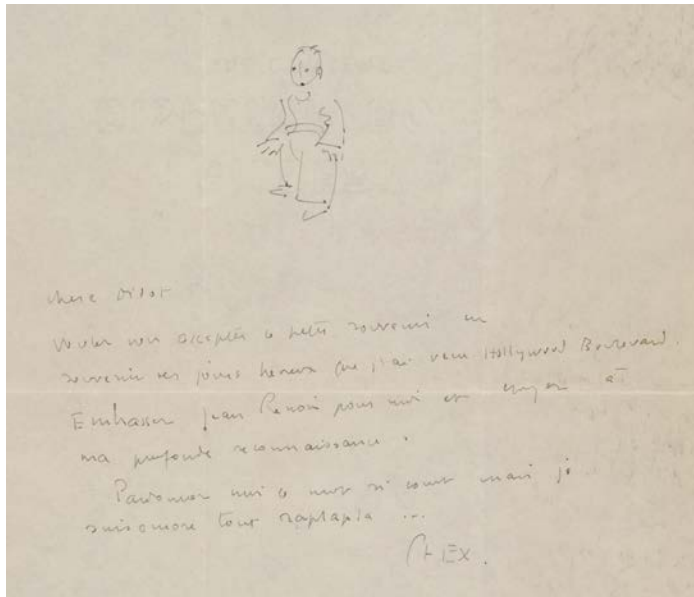 chere Didot
Voulez vous acceptez ce petit souvenir en
souvenir des jours heureux que j'ai vecu Hollywood Boulevard.
Embrasser Jean Renoir pour moi et croyez à
ma profonde reconnaissance.
Pardonner moi ce mot si court mais je
suis encore tout raplapla ...
St EX.